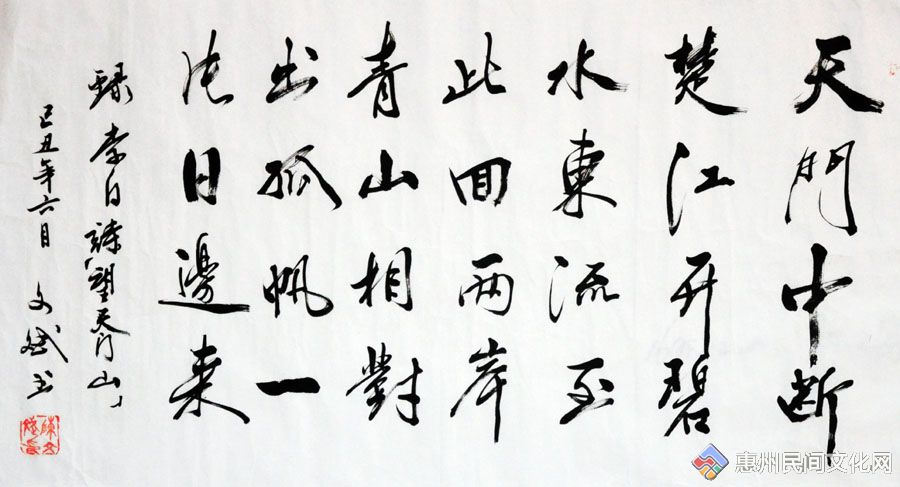 天門中断
楚江开碧
水東流至
此回两岸
青山相對
出孤帆一
片日邊来
録李白詩「望天门山」
己丑年六月 文斌书
惠州民间文化网